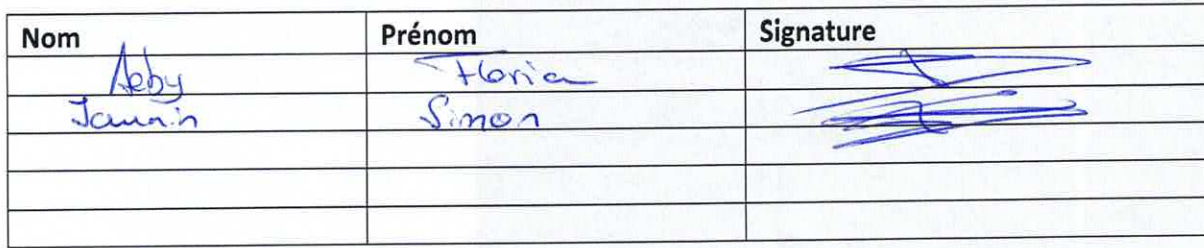 Nom Prénom Signature
Aeby Floria
Simon